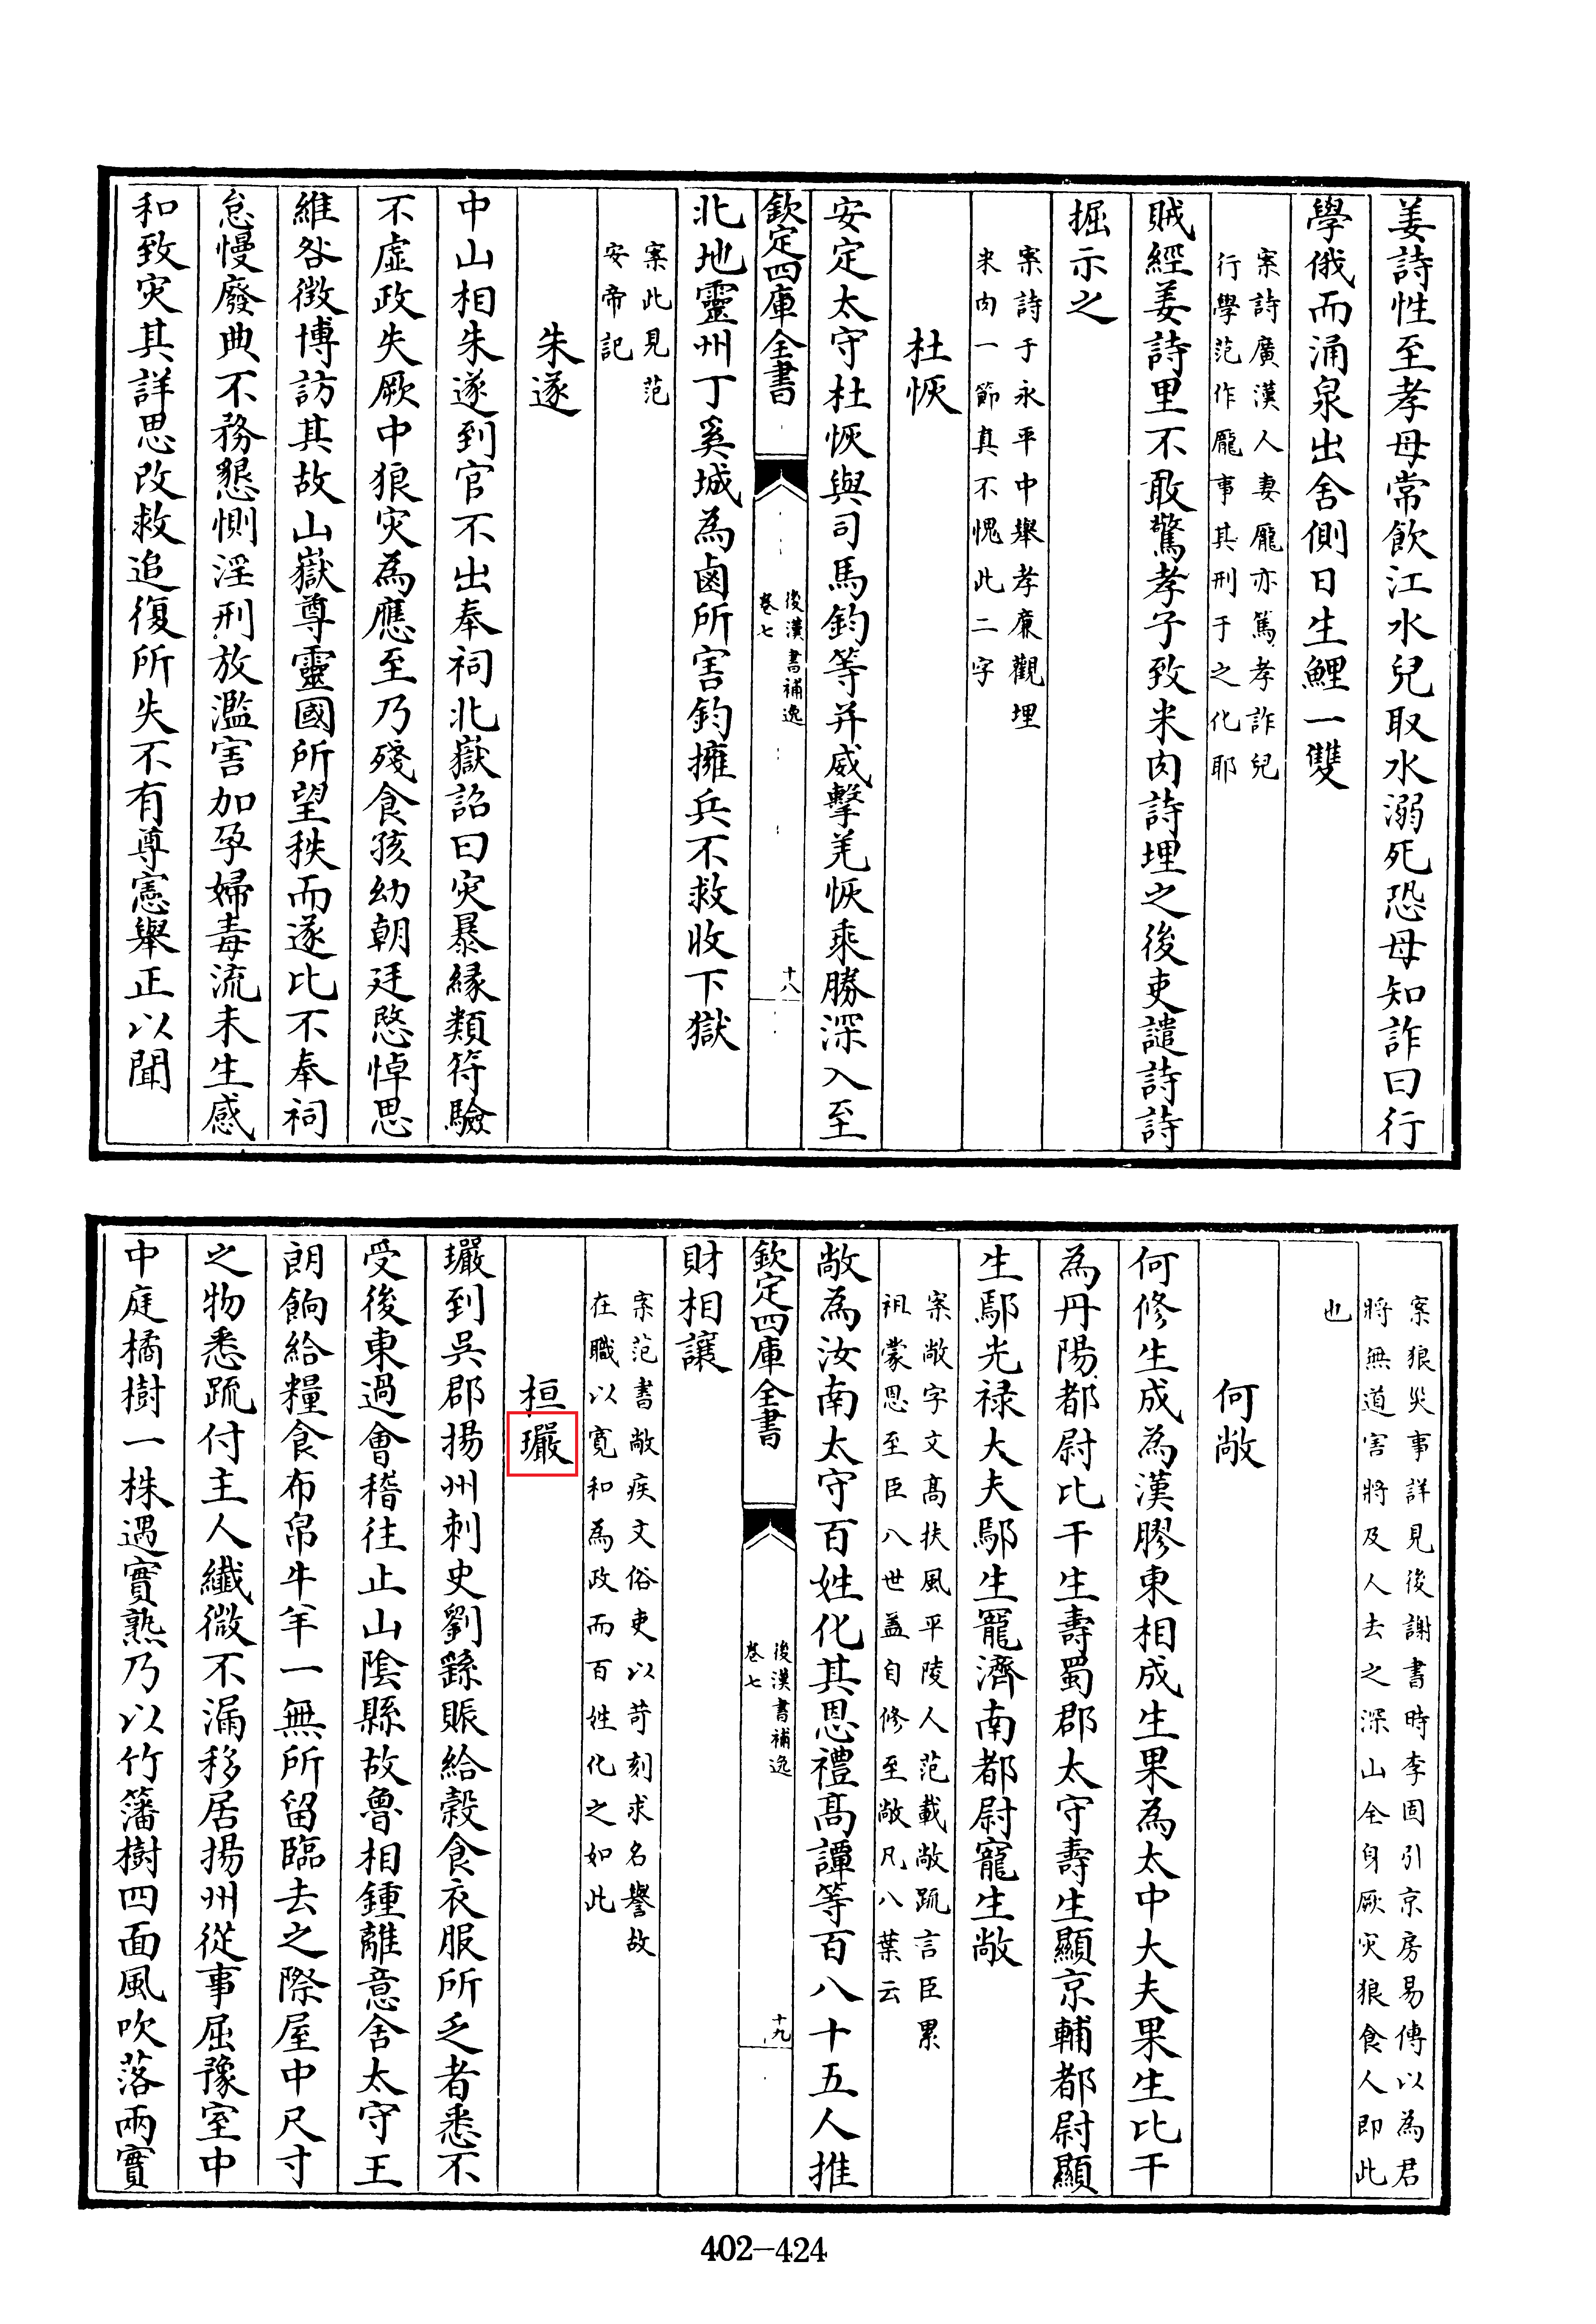 姜詩性至孝母常飲江水兒取水溺死恐母知詐曰行
學俄而涌泉出舍側日生鯉一雙
案詩廣漢人妻龐亦篤孝詐兒
行學范作龐事其刑于之化耶
賊經姜詩里不敢驚孝子致米肉詩埋之後吏譴詩詩
掘示之
案詩于永平中舉孝廉觀埋
米肉一節真不愧此二字
杜恢
安定太守杜恢與司馬鈞等并威擊羌恢乘勝深入至
欽定四庫全書
後漢書補逸
卷七
十八
北地靈州丁奚城為鹵所害鈞擁兵不救收下獄
案此見范
安帝記
朱遂
中山相朱遂到官不出奉祠北嶽詔曰灾暴緣類符驗
不虛政失厥中狼灾為應至乃殘食孩幼朝廷愍悼思
維咎徴博訪其故山嶽尊靈國所望秩而遂比不奉祠
怠慢廢典不務懇惻淫刑放濫害加孕婦毒流未生感
和致灾其詳思改救追復所失不有尊憲舉正以聞
案狼災事詳見後謝書時李固引京房易傳以為君
將無道害將及人去之深山全身厥灾狼食人即此
也
何敞
何修生成為漢膠東相成生果為太中大夫果生比干
為丹陽都尉比干生壽蜀郡太守壽生顯京輔都尉顯
生鄢光禄大夫鄢生寵濟南都尉寵生敞
案敞字文髙扶風平陵人范載敞疏言臣累
祖蒙恩至臣八世蓋自修至敞凡八葉云
敞為汝南太守百姓化其恩禮髙譚等百八十五人推
欽定四庫全書
後漢書補逸
卷七
十九
財相讓
案范書敞疾文俗吏以苛刻求名譽故
在職以寛和為政而百姓化之如此
桓𤫩
𤫩到呉郡揚州刺史劉繇賑給穀食衣服所乏者悉不
受後東過會稽往止山陰縣故魯相鍾離意舍太守王
朗餉給糧食布帛牛羊一無所留臨去之際屋中尺寸
之物悉疏付主人纎微不漏移居揚州從事屈豫室中
中庭橘樹一株遇實熟乃以竹籓樹四面風吹落兩實
402-424